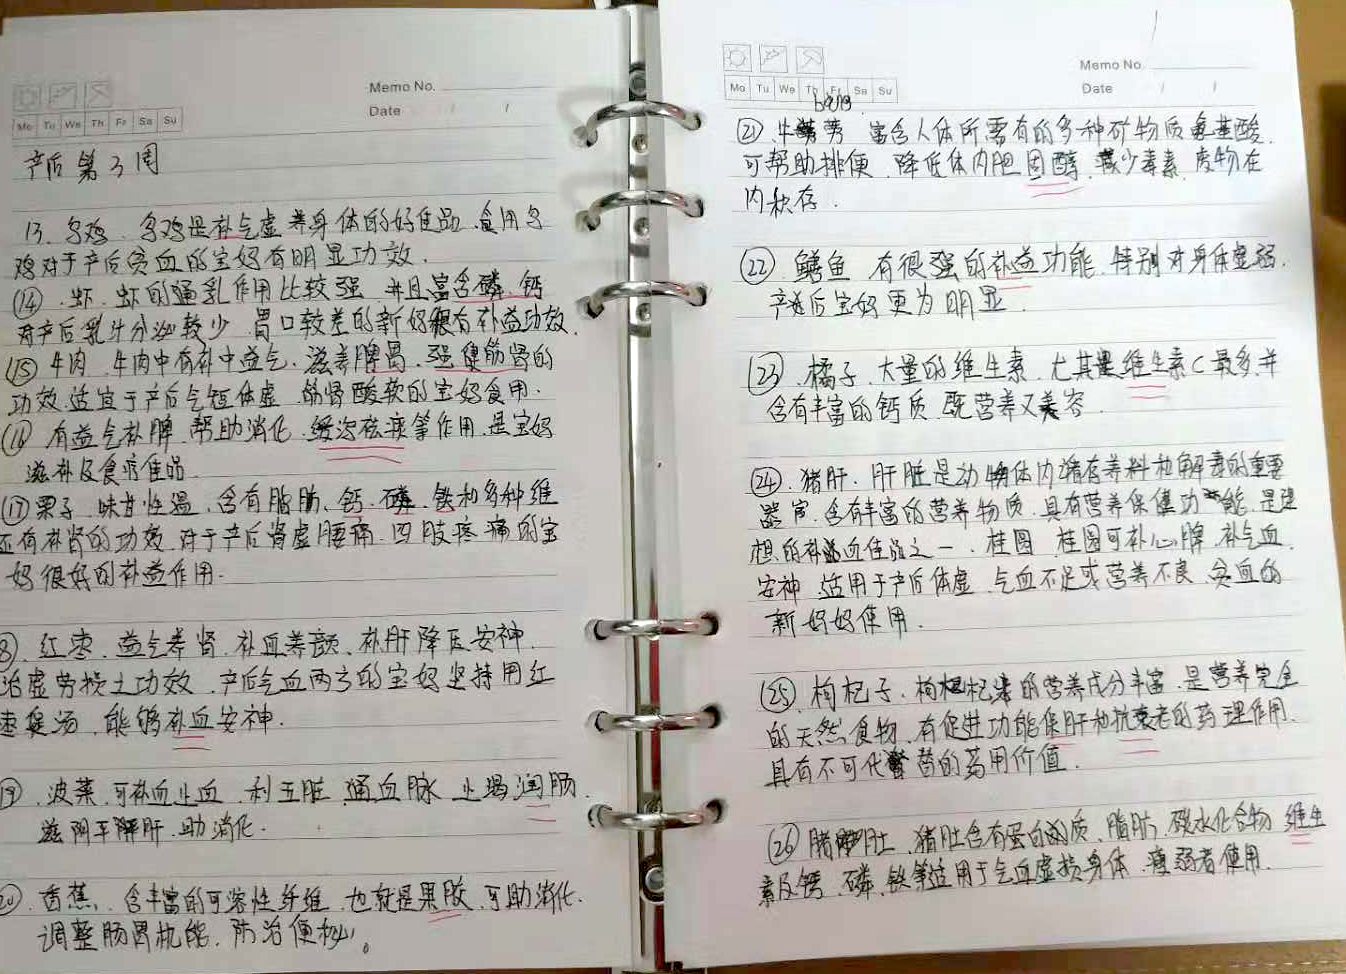 Memo No.
Date / /
Mo Tu We Th Fr Sa Su
产后第3周
13. 乌鸡. 乌鸡是补气虚养身体的好佳品. 食用乌
鸡对于产后贫血的宝妈有明显功效.
⑭ .虾. 虾的通乳作用比较强 并且富含磷.钙
对产后乳汁分泌较少 胃口较差的新妈很有补益功效.
⑮ 牛肉. 牛肉中有补中益气. 滋养脾胃. 强健筋肾的
功效.适宜于产后气短体虚 筋肾酸软的宝妈食用.
⑯ 有益气补脾.帮助消化.缓泻祛痰等作用.是宝妈
滋补及食疗佳品
⑰ 栗子. 味甘性温. 含有脂肪、钙.磷.铁和多种维
还有补肾的功效.对于产后肾虚腰痛.四肢疼痛的宝
妈很好的补益作用.
8. 红枣. 益气养肾. 补血养颜. 补肝降压安神.
治虚劳损之功效.产后气血两亏的宝妈坚持用红
枣煲汤. 能够补血安神.
19 .波菜.可补血止血 利五脏 通血脉 止渴润肠.
滋阴平肝.助消化.
20. 香蕉. 含丰富的可溶性纤维.也就是果胶.可助消化.
调整肠胃机能. 防治便秘。
Memo No.
Date / /
Mo Tu We Th Fr Sa Su
bang
㉑ 牛蒡 富含人体所需有的多种矿物质氨基酸.
可帮助排便. 降低体内胆固醇. 减少毒素.废物在
内积存.
㉒ 鳝鱼 有很强的补益功能.特别对身体虚弱.
产后宝妈更为明显.
㉓ .橘子.大量的维生素 尤其是维生素C最多.并
含有丰富的钙质.既营养又美容.
㉔ .猪肝.肝脏是动物体内储存养料和解毒的重要
器官.含有丰富的营养物质.具有营养保健功能.是理
想的补血佳品之一. 桂圆 桂圆可补心脾.补气血.
安神.适用于产后体虚.气血不足或营养不良.贫血的
新妈妈使用.
㉕.枸杞子.枸杞的营养成分丰富.是营养完全
的天然食物.有促进功能保肝和抗衰老的药理作用.
具有不可代替的药用价值.
㉖ 猪肚.猪肚含有蛋白质.脂肪.碳水化合物 维生
素及钙.磷.铁等适用于气血虚损身体.瘦弱者使用.